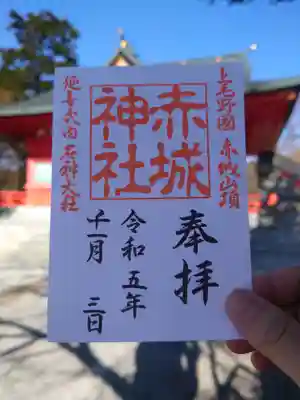 上毛野國 赤城山頂
奉拝
赤城
神社
令和五年
十一月 三日
延喜式内 名神大社